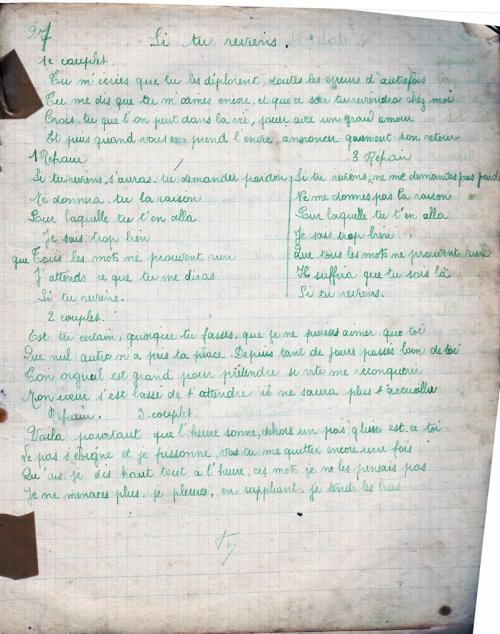 37
Si tu reviens.
1e couplet.
Tu m'écries que tu les déplorent, toutes les erreurs d'autrefois
Tu me dis que tu m'aimes encore, et que ce soir tu reviendra chez moi
Crois tu que l'on peut dans la vie, jouer avec un grand amour
Et puis quand vous prend l'envie, annoncer gaiement son retour
1 Refrain
Si tu reviens, s'auras tu demander pardon
Me donnera tu la raison
Pour laquelle tu t'en alla
Je sais trop bien
que Tous les mots ne prouvent rien
J'attends ce que tu me diras
Si tu reviens.
3 Refrain
Si tu reviens, ne me demandes pas pardon
Ne me donnes pas la raison
Pour laquelle tu t'en alla
Je sais trop bien
Que tous les mots ne prouvent rien
Il suffira que tu sois là
Si tu reviens.
2 couplet.
Est tu certain, quoique tu fasses, que je ne puisses aimer que toi
Que nul autre n'a pris ta place. Depuis tant de jours passés loin de toi
Ton orgueil est grand pour prétendre si vite me reconquérir
Mon cœur s'est lassé de t'attendre il ne saura plus t'accueillir
Refrain. 3. couplet.
Voila pourtant que l'heure sonne, dehors un pas glisse est ce toi
Le pas s'éloigne et je frissonne, vas tu me quitter encore une fois
Qu'ais je dis haut tout à l'heure, ces mots je ne les pensais pas
Je ne menaces plus, je pleures, en suppliant, je tends les bras